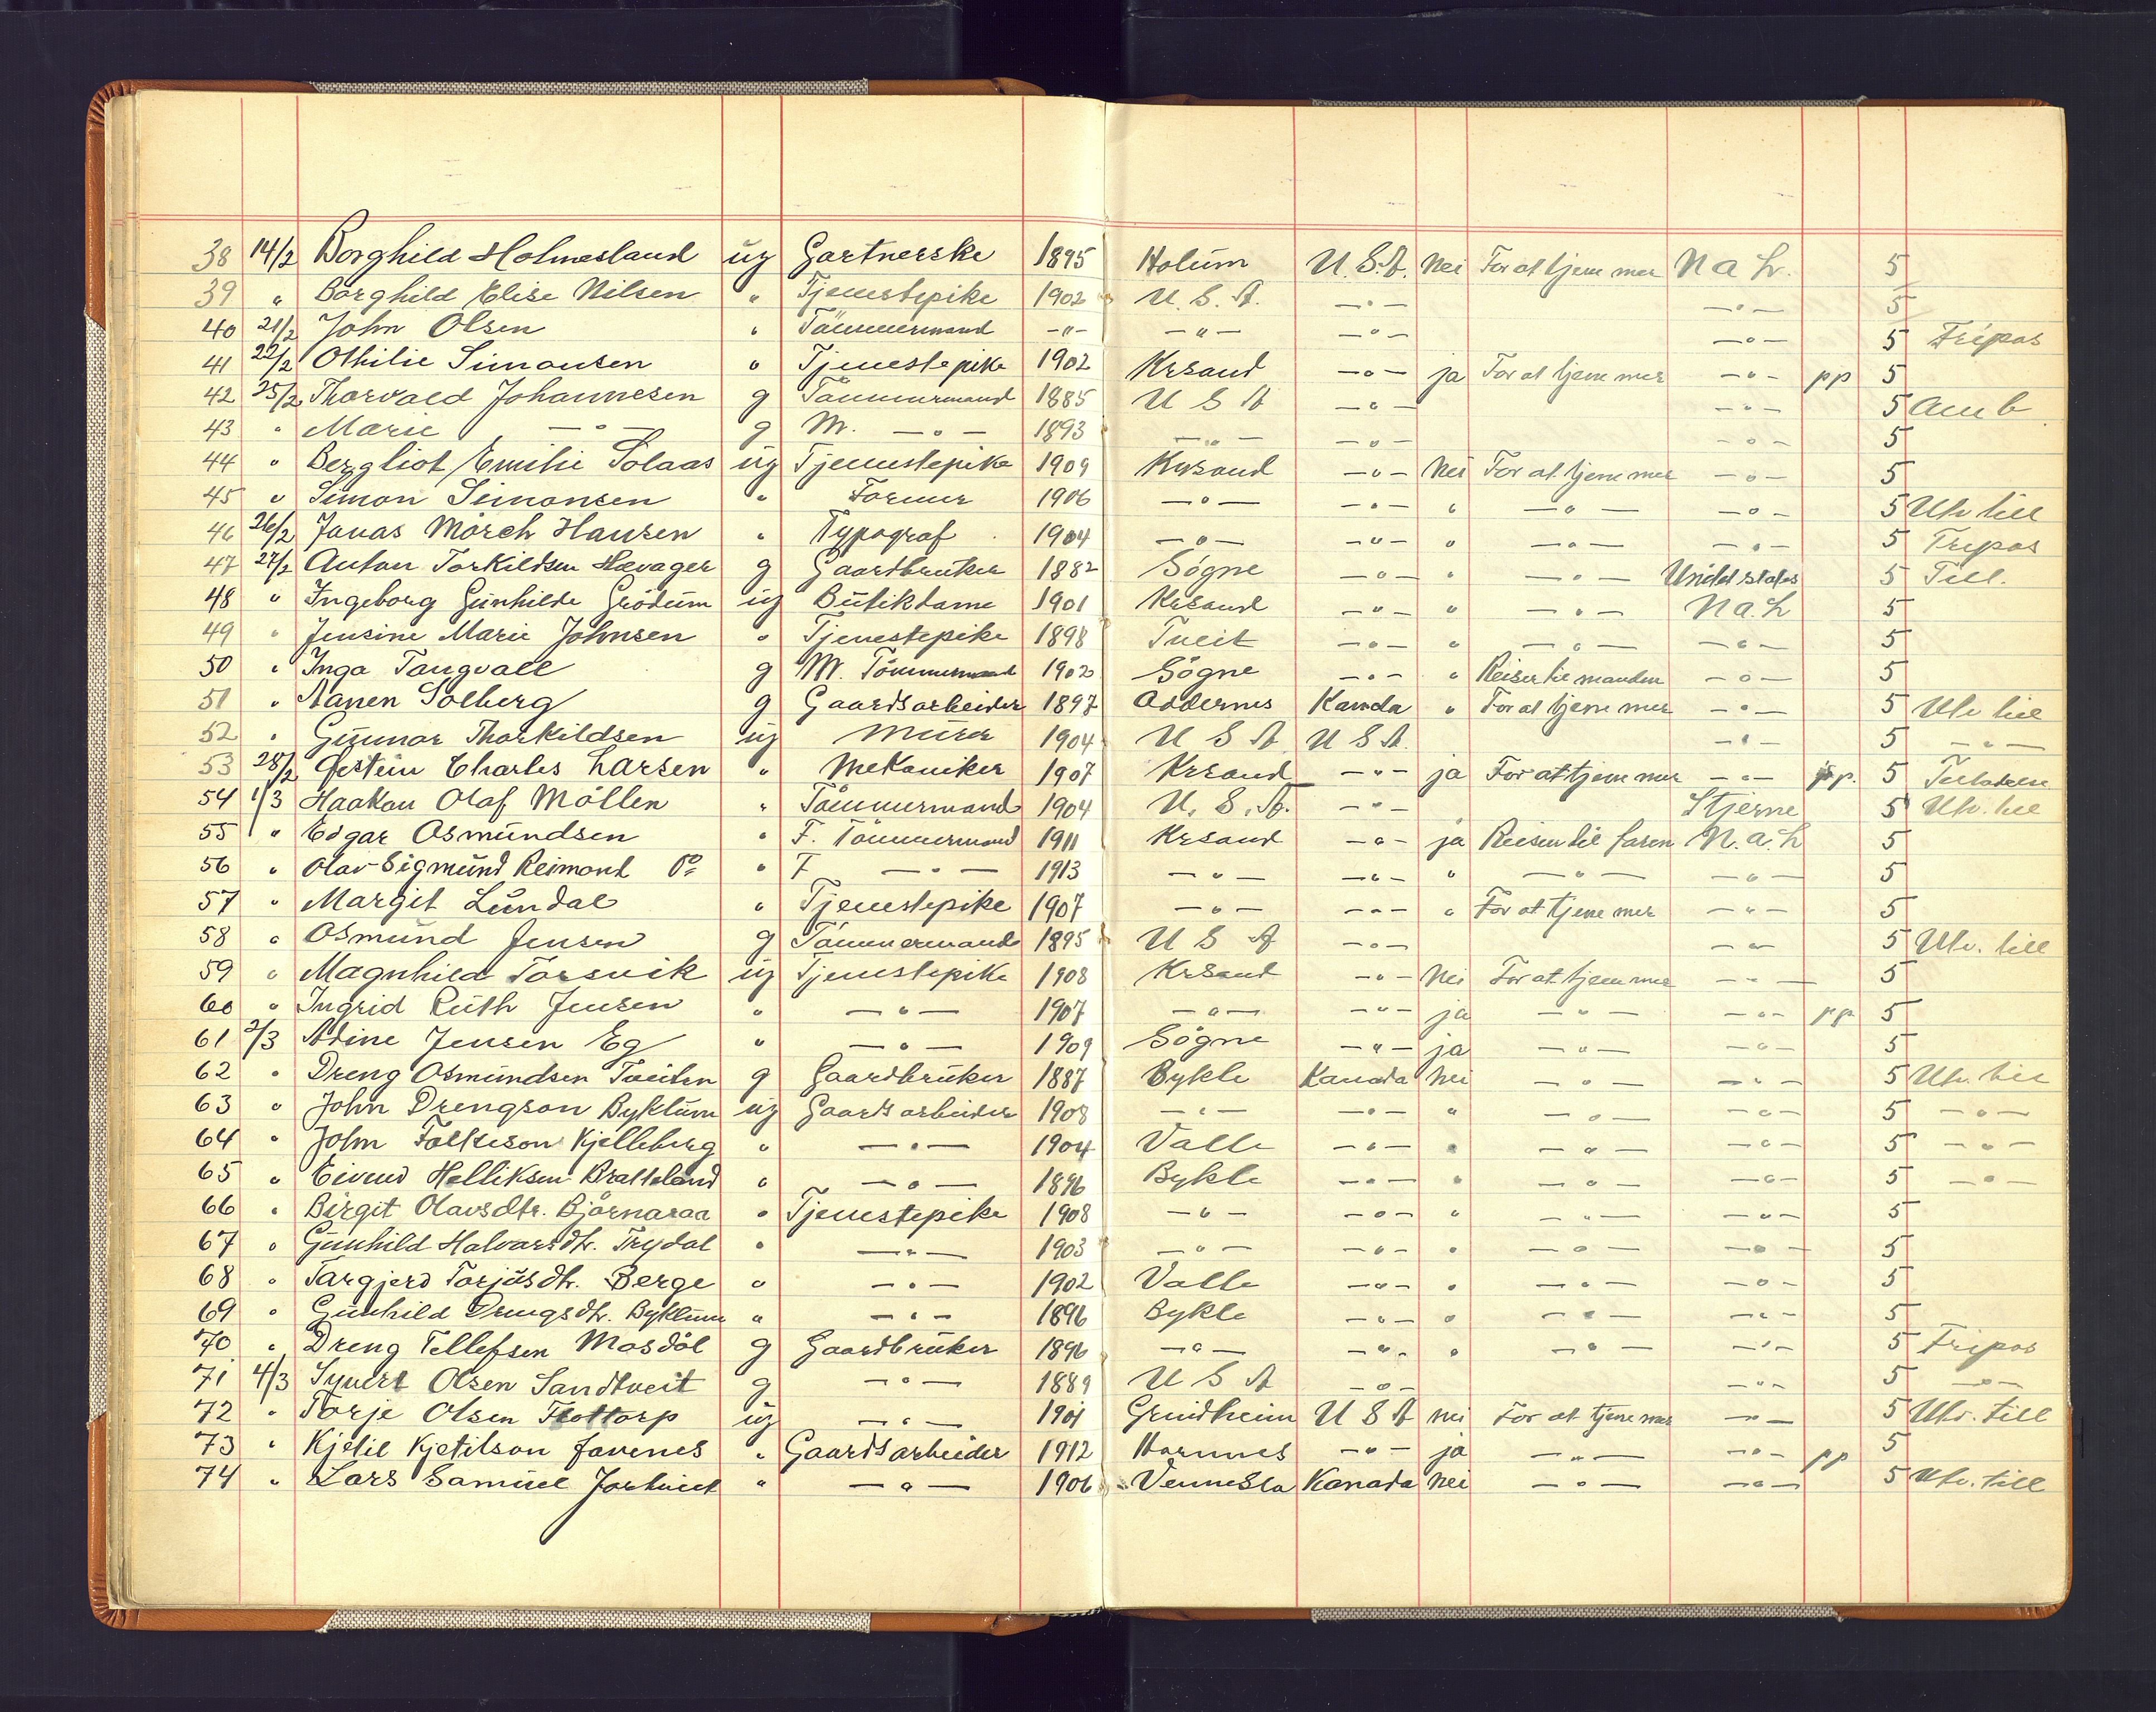 38 14/2 Borghild Holmesland ug Gartnerske 1895 Holum U.S.A. Nei For at tjene mer N a L. 5
39 " Borghild Elise Nilsen " Tjenestepike 1902 U.S.A. -"- -"- 5
40 21/2 John Olsen " Tömmermand -"- -"- -"- -"- 5 Fripas
41 22/2 Othilie Simonsen " Tjenestepike 1902 Krsand -"- ja For at tjene mer -"- pp 5
42 25/2 Thorvald Johannesen g Tömmermand 1885 U S A -"- -"- 5 Amb
43 " Marie -"- g M. -"- 1893 -"- -"- -"- 5
44 " Bergliot Emilie Solaas ug Tjenestepike 1909 Krsand -"- Nei For at tjene mer -"- 5
45 " Simon Simonsen " Former 1906 -"- -"- " -"- -"- 5 Utv till
46 26/2 Jonas Mörch Hansen " Typograf 1904 -"- -"- " -"- -"- 5 Fripas
47 27/2 Anton Torkildsen Hævager g Gaardbruker 1882 Sögne -"- " -"- Unidet states 5 Till.
48 " Ingeborg Gunhilde Grödum ug Butikdame 1901 Krsand -"- " -"- N a. L 5
49 " Jensine Marie Johnsen " Tjenestepike 1898 Tveit -"- " -"- -"- 5
50 " Inga Tangvall g M. Tömmermand 1902 Sögne -"- " Reiser til manden -"- 5
51 " Aanen Solberg g Gaardsarbeider 1897 Oddernes Kanada " For at tjene mer -"- 5 Utv till
52 " Gunnar Thorkildsen ug Murer 1904 U S A U S A. -"- 5 -"-
53 28/2 Øistein Charles Larsen " Mekaniker 1907 Krsand -"- ja For at tjene mer -"- pp. 5
54 1/3 Haakon Olaf Möllen " Tömmermand 1904 U.S.A. -"- Stjerne 5 Utv. till
55 " Edgar Osmundsen " F. Tömmermand 1911 Krsand -"- ja Reisen til faren N. a. L 5
56 " Olav Sigmund Reimont Do " F -"- 1913 -"- -"- " -"- -"- 5
57 " Margit Lundal " Tjenestepike 1907 -"- -"- " For at tjene mer -"- 5
58 " Osmund Jensen g Tömmermand 1895 U S A -"- -"- 5 Utv. till
59 " Magnhild Torsvik ug Tjenestepike 1908 Krsand -"- Nei For at tjene mer -"- 5
60 " Ingrid Ruth Jensen " -"- 1907 -"- -"- ja -"- -"- pp 5
61 2/3 Adine Jensen Eg " -"- 1909 Sögne -"- ja -"- -"- 5
62 " Dreng Osmundsen Tveiten g Gaardbruker 1887 Bykle Kanada Nei -"- -"- 5 Utv. till
63 " John Drengson Byklum ug Gaardsarbeider 1908 -"- -"- " -"- -"- 5 -"-
64 " John Folkeson Kjelleberg " -"- 1904 Valle -"- " -"- -"- 5 -"-
65 " Eivind Helliksen Bratteland " -"- 1896 Bykle -"- " -"- -"- 5 -"-
66 " Birgit Olavsdtr. Björnaraa " Tjenestepike 1908 -"- -"- " -"- -"- 5
67 " Gunhild Halvorsdtr. Trydal " -"- 1903 -"- -"- " -"- -"- 5
68 " Targjerd Torjusdtr. Berge " -"- 1902 Valle -"- " -"- -"- 5
69 " Gunhild Drengsdtr. Byklum " -"- 1896 Bykle -"- " -"- -"- 5
70 " Dreng Tellefsen Mosdöl g Gaardbruker 1896 -"- -"- " -"- -"- 5 Fripas
71 4/3 Syvert Olsen Sandtveit g -"- 1889 U S A -"- -"- 5 -"-
72 " Torje Olsen ug -"- 1901 Grindheim U S A nei For at tjene mer -"- 5 Utv. till
73 " Kjetil Kjetilson Favenes " Gaardsarbeider 1912 Hornnes -"- ja -"- -"- pp 5
74 " Lars Samuel " -"- 1906 Vennesla Kanada Nei -"- -"- 5 Utv. till